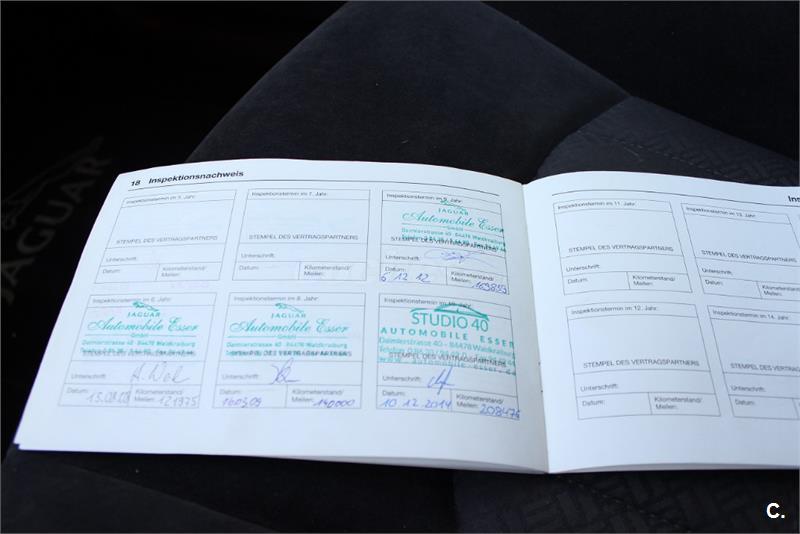 JAGUAR
18 Inspektionsnachweis
Inspektionstermin im 5. Jahr:
STEMPEL DES VERTRAGSPARTNERS
Unterschrift:
Datum: Kilometerstand/
Meilen:
Inspektionstermin im 7. Jahr:
STEMPEL DES VERTRAGSPARTNERS
Unterschrift:
Datum: Kilometerstand/
Meilen:
Inspektionstermin im 9. Jahr:
JAGUAR
Automobile Esser
GmbH
Daimlerstrasse 40 - 84478 Waldkraiburg
STEMPEL DES VERTRAGSPARTNERS
Unterschrift:
Datum: Kilometerstand/
6 12 12 Meilen:
Inspektionstermin im 6. Jahr:
JAGUAR
Automobile Esser
GmbH
Daimlerstrasse 40 - 84478 Waldkraiburg
STEMPEL DES VERTRAGSPARTNERS
Unterschrift:
Datum: Kilometerstand/
Meilen: 121975
Inspektionstermin im 8. Jahr:
JAGUAR
Automobile Esser
GmbH
Daimlerstrasse 40 - 84478 Waldkraiburg
STEMPEL DES VERTRAGSPARTNERS
Unterschrift:
Datum: Kilometerstand/
16.03.09 Meilen: 140000
Inspektionstermin im 10. Jahr:
STUDIO 40
AUTOMOBILE ESSER
Daimlerstrasse 40 - 84478 Waldkraiburg
STEMPEL DES VERTRAGSPARTNERS
www.automobile-esser.de
Unterschrift:
Datum: Kilometerstand/
10.12.2014 Meilen: 208476
Inspektionstermin im 11. Jahr:
STEMPEL DES VERTRAGSPARTNERS
Unterschrift:
Datum: Kilometerstand/
Meilen:
Inspektionstermin im 13. Jahr:
STEMPEL DES VERTRAGSPARTNERS
Unterschrift:
Datum: Kilometerstand/
Meilen:
Inspektionstermin im 12. Jahr:
STEMPEL DES VERTRAGSPARTNERS
Unterschrift:
Datum: Kilometerstand/
Meilen:
Inspektionstermin im 14. Jahr:
STEMPEL DES VERTRAGSPARTNERS
Unterschrift:
Datum: Kilometerstand/
Meilen:
Ins
C.